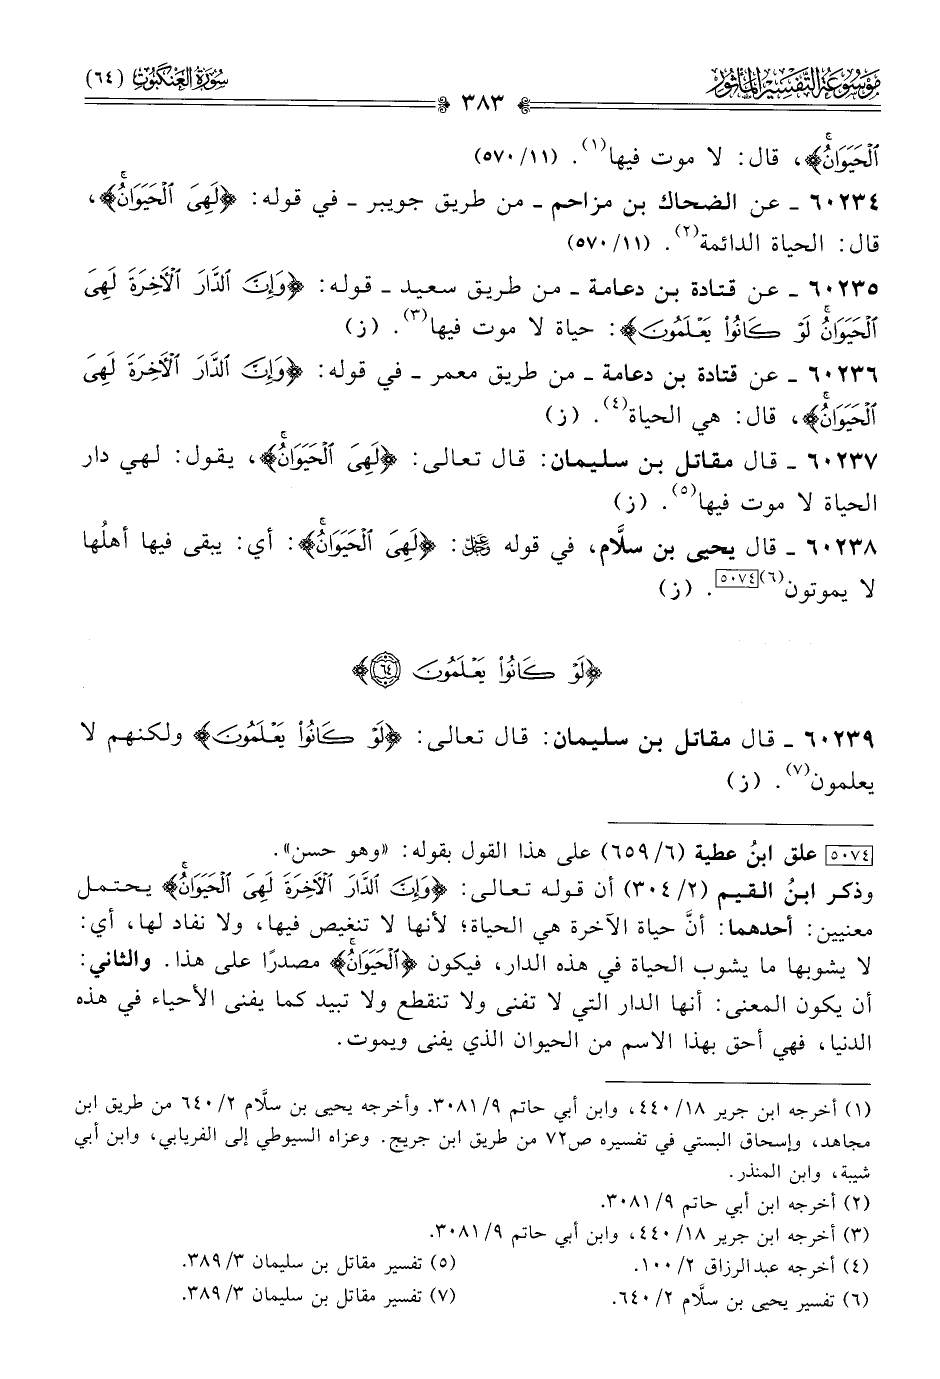 موسوعة التفسير المأثور
سورة العنكبوت (٦٤)
٣٨٣
ٱلْحَيَوَانُۚ﴾، قال: لا موت فيها(١). (١١/ ٥٧٠)
٦٠٢٣٤ ـ عن الضحاك بن مزاحم ـ من طريق جويبر ـ في قوله: ﴿لَهِىَ ٱلْحَيَوَانُۚ﴾،
قال: الحياة الدائمة(٢). (١١/ ٥٧٠)
٦٠٢٣٥ ـ عن قتادة بن دعامة ـ من طريق سعيد ـ قوله: ﴿وَإِنَّ ٱلدَّارَ ٱلْأَخِرَةَ لَهِىَ
ٱلْحَيَوَانُۚ لَوْ كَانُوا۟ يَعْلَمُونَ﴾: حياة لا موت فيها(٣). (ز)
٦٠٢٣٦ ـ عن قتادة بن دعامة ـ من طريق معمر ـ في قوله: ﴿وَإِنَّ ٱلدَّارَ ٱلْأَخِرَةَ لَهِىَ
ٱلْحَيَوَانُۚ﴾، قال: هي الحياة(٤). (ز)
٦٠٢٣٧ ـ قال مقاتل بن سليمان: قال تعالى: ﴿لَهِىَ ٱلْحَيَوَانُۚ﴾، يقول: لهي دار
الحياة لا موت فيها(٥). (ز)
٦٠٢٣٨ ـ قال يحيى بن سلَّام، في قوله ﷺ: ﴿لَهِىَ ٱلْحَيَوَانُۚ﴾: أي: يبقى فيها أهلُها
لا يموتون(٦)[٥٠٧٤]. (ز)
﴿لَوْ كَانُوا۟ يَعْلَمُونَ ٦٤﴾
٦٠٢٣٩ ـ قال مقاتل بن سليمان: قال تعالى: ﴿لَوْ كَانُوا۟ يَعْلَمُونَ﴾ ولكنهم لا
يعلمون(٧). (ز)
[٥٠٧٤] علق ابنُ عطية (٦/ ٦٥٩) على هذا القول بقوله: «وهو حسن».
وذكر ابنُ القيم (٢/ ٣٠٤) أن قوله تعالى: ﴿وَإِنَّ ٱلدَّارَ ٱلْأَخِرَةَ لَهِىَ ٱلْحَيَوَانُۚ﴾ يحتمل
معنيين: أحدهما: أنَّ حياة الآخرة هي الحياة؛ لأنها لا تنغيص فيها، ولا نفاد لها، أي:
لا يشوبها ما يشوب الحياة في هذه الدار، فيكون ﴿ٱلْحَيَوَانُۚ﴾ مصدرًا على هذا. والثاني:
أن يكون المعنى: أنها الدار التي لا تفنى ولا تنقطع ولا تبيد كما يفنى الأحياء في هذه
الدنيا، فهي أحق بهذا الاسم من الحيوان الذي يفنى ويموت.
(١) أخرجه ابن جرير ١٨/ ٤٤٠، وابن أبي حاتم ٩/ ٣٠٨١. وأخرجه يحيى بن سلَّام ٢/ ٦٤٠ من طريق ابن
مجاهد، وإسحاق البستي في تفسيره ص٧٢ من طريق ابن جريج. وعزاه السيوطي إلى الفريابي، وابن أبي
شيبة، وابن المنذر.
(٢) أخرجه ابن أبي حاتم ٩/ ٣٠٨١.
(٣) أخرجه ابن جرير ١٨/ ٤٤٠، وابن أبي حاتم ٩/ ٣٠٨١.
(٤) أخرجه عبدالرزاق ٢/ ١٠٠.
(٥) تفسير مقاتل بن سليمان ٣/ ٣٨٩.
(٦) تفسير يحيى بن سلَّام ٢/ ٦٤٠.
(٧) تفسير مقاتل بن سليمان ٣/ ٣٨٩.